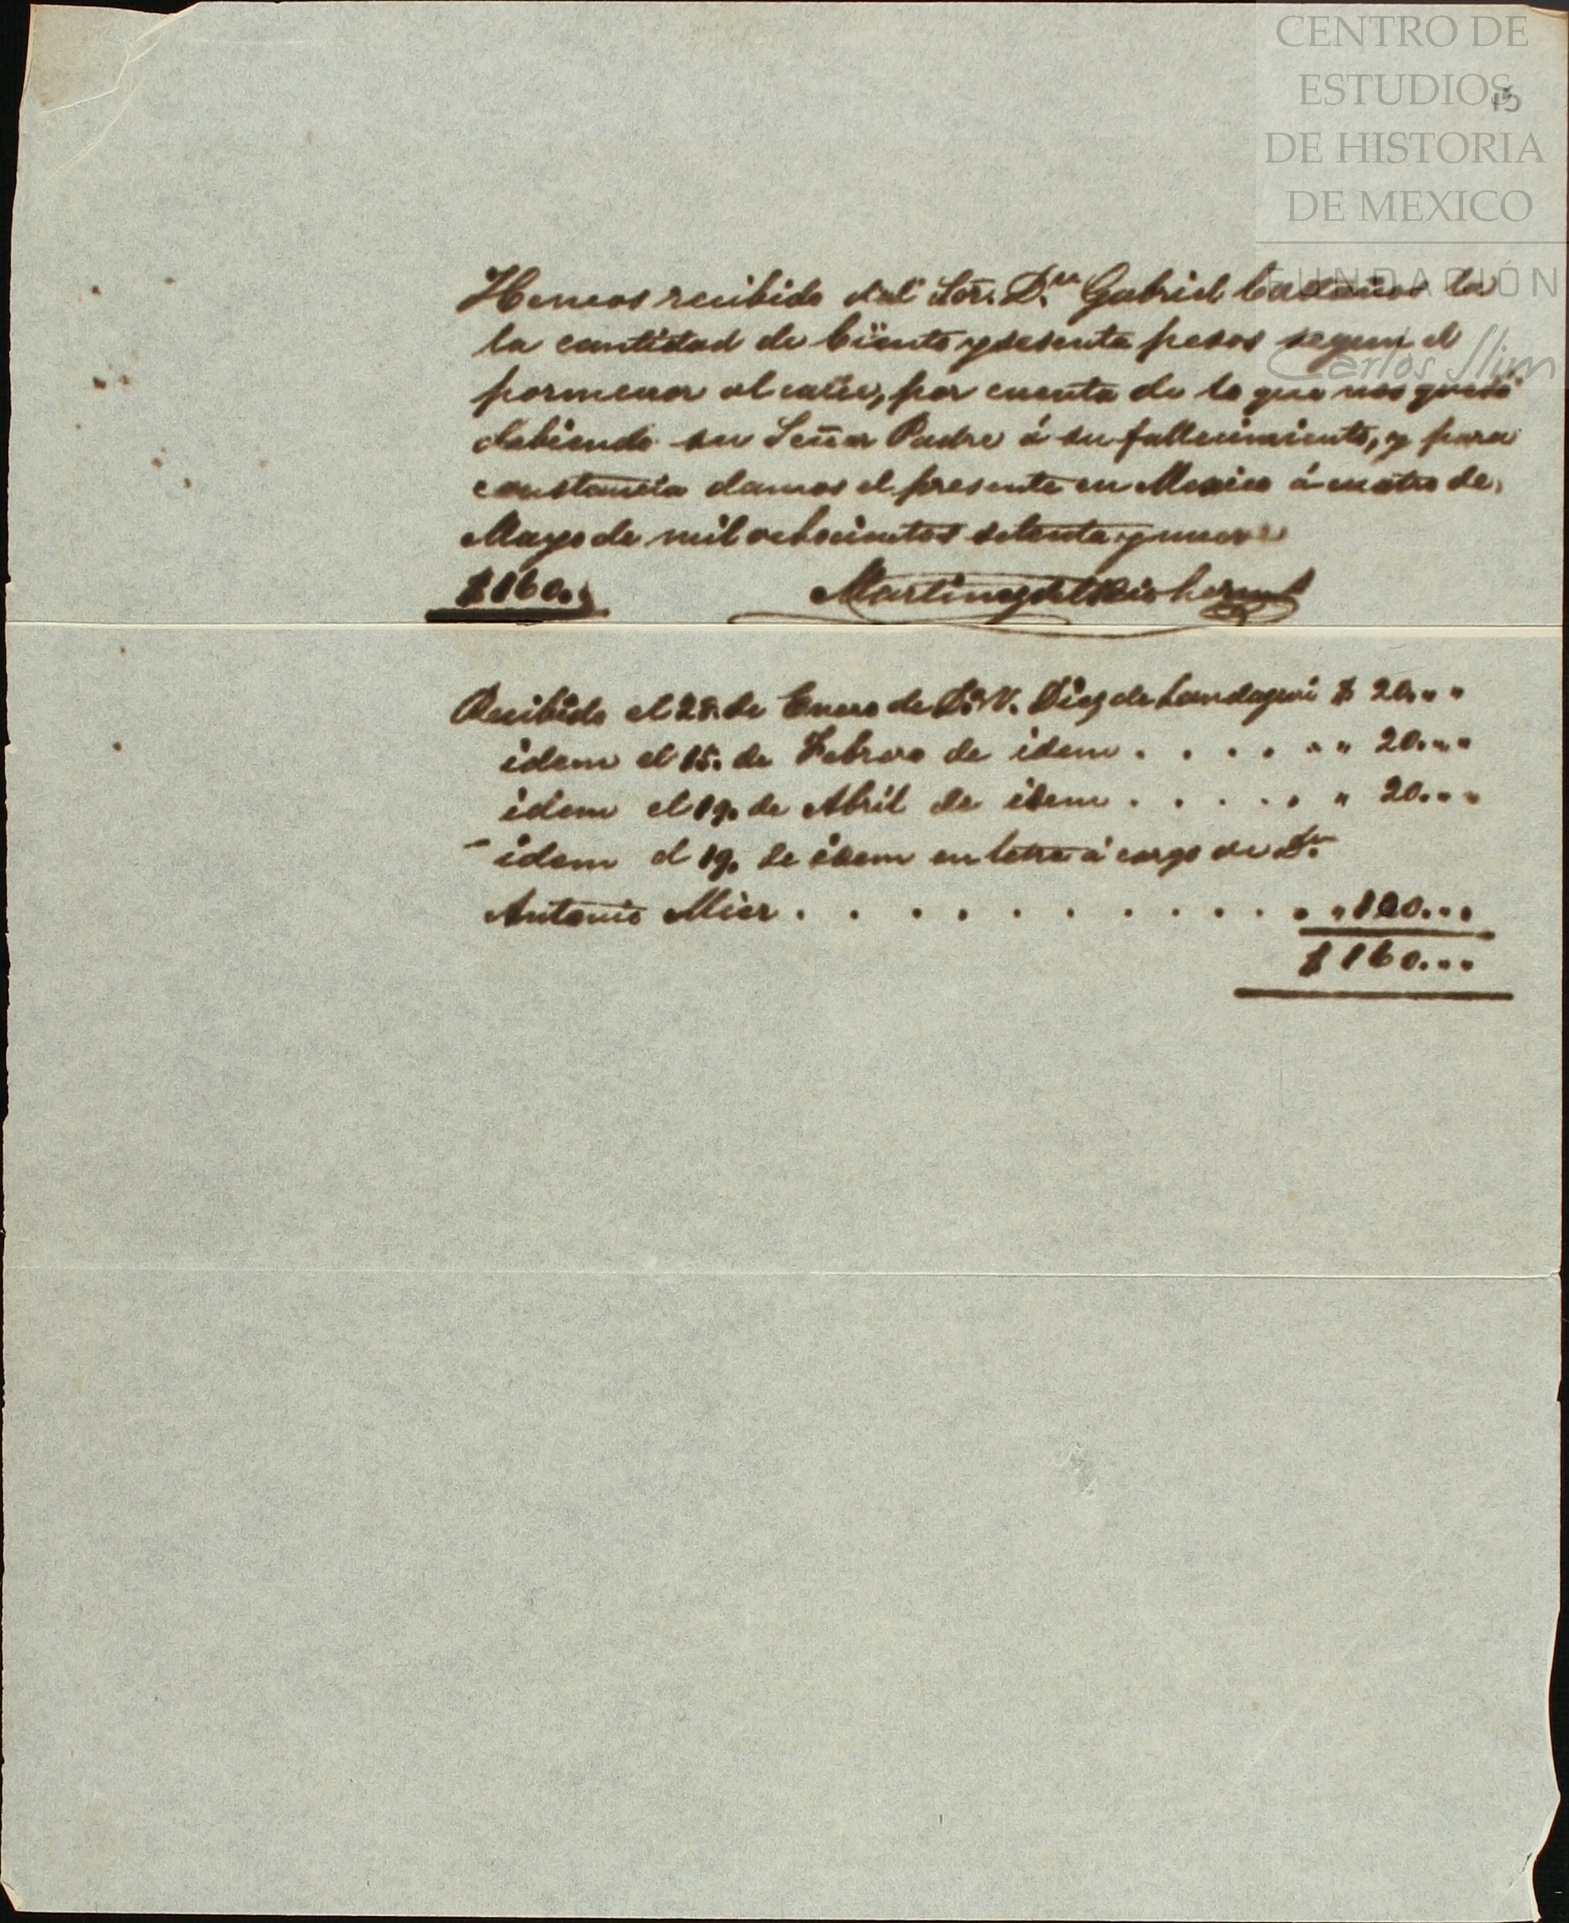 CENTRO DE
ESTUDIOS
DE HISTORIA
DE MEXICO
FUNDACIÓN
Carlos Slim
15
Hemos recibido del Sor. Dn. Gabriel Castaños la
la cantidad de Ciento y sesenta pesos segun el
pormenor al calce, por cuenta de lo que nos quedó
debiendo su Señor Padre á su fallecimiento, y para
constancia damos el presente en Mexico á cuatro de
Mayo de mil ochocientos setenta y nueve
$160.. Martinez del Rio herms
Recibido el 28. de Enero de D. V. Diez de Landaguri $ 20 . " "
idem el 15. de Febrero de idem . . . . " " 20 . " "
idem el 19. de Abril de idem . . . . . " 20 . " "
idem el 19. de idem en letra á cargo de Dn.
Antonio Mier . . . . . . . . . . . " 100 . . .
$ 160 . . .